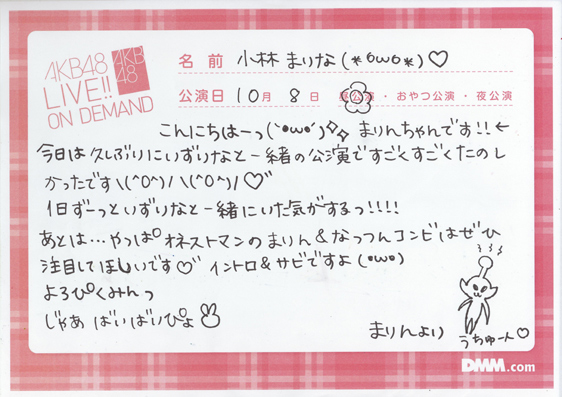 AKB48
LIVE!!
ON DEMAND
AKB
48
名 前 小林 まりな (*•ω•*)♡
公演日 10月 8日 昼公演・おやつ公演・夜公演
こんにちはーっ(`•ω•´)✧✧ まりんちゃんです!!←
今日は久しぶりにいずりなと一緒の公演ですごくすごくたのし
かったです\(^O^)/\(^O^)/♡
1日ずーっといずりなと一緒にいた気がするっ!!!!
あとは…やっぱ オネストマンのまりん&なっつんコンビはぜひ
注目してほしいです♡ イントロ&サビですよ(•ω•)
よろぴくみんっ
じゃあ ばいばいぴよ
まりんより
うちゅー人♡
DMM.com